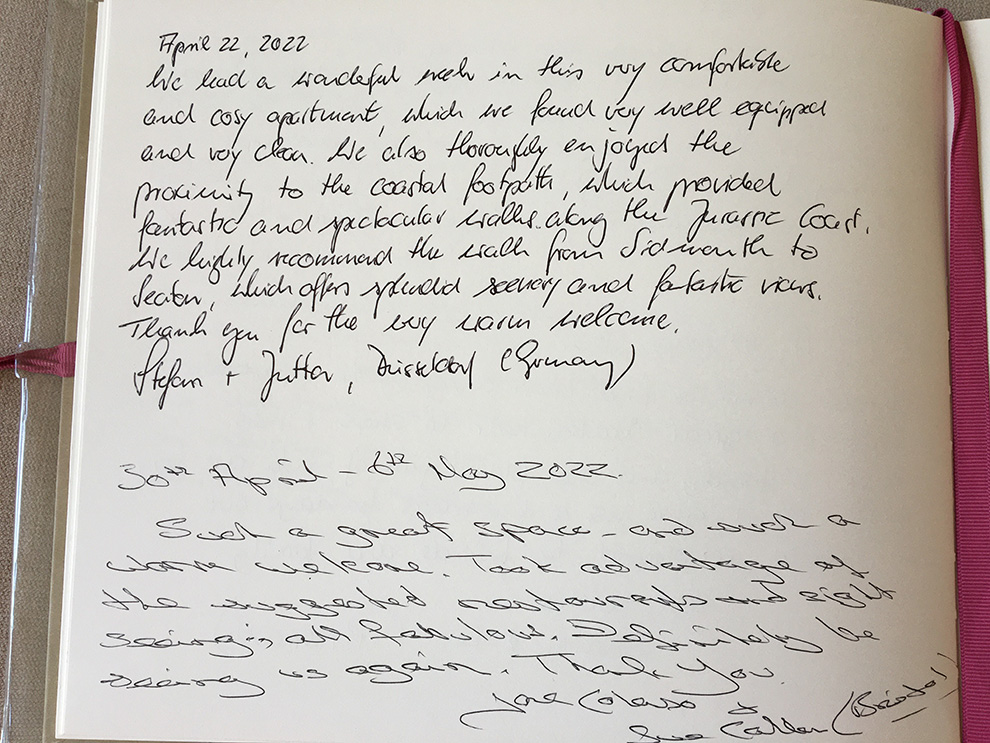 April 22, 2022
We had a wonderful week in this very comfortable
and cosy apartment, which we found very well equipped
and very clean. We also thoroughly enjoyed the
proximity to the coastal footpath, which provided
fantastic and spectacular walks along the Jurassic Coast.
We highly recommend the walk from Sidmouth to
Seaton, which offers splendid scenery and fantastic views.
Thank you for the very warm welcome.
Stefan + Jutta, Düsseldorf (Germany)
30th April - 6th May 2022.
Such a great space - and such a
warm welcome. Took advantage of
the suggested restaurants and sight
seeing; all fabulous. Definitely be
seeing us again. Thank you.
Jane &
Sue (Bristol)